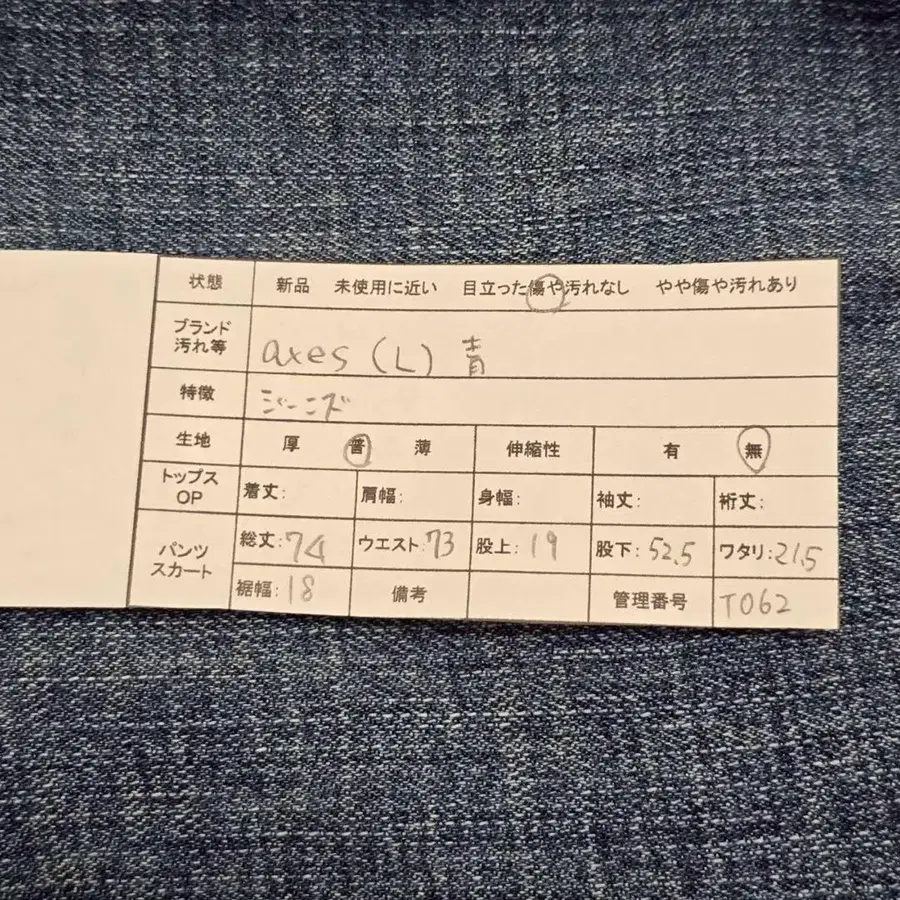 状態 新品 未使用に近い 目立った傷や汚れなし やや傷や汚れあり
ブランド
汚れ等
axes (L) 青
特徴 ジーンズ
生地 厚 普 薄 伸縮性 有 無
トップス
OP
着丈: 肩幅: 身幅: 袖丈: 裄丈:
パンツ
スカート
総丈:74 ウエスト:73 股上:19 股下:52.5 ワタリ:21.5
裾幅:18 備考 管理番号 T062